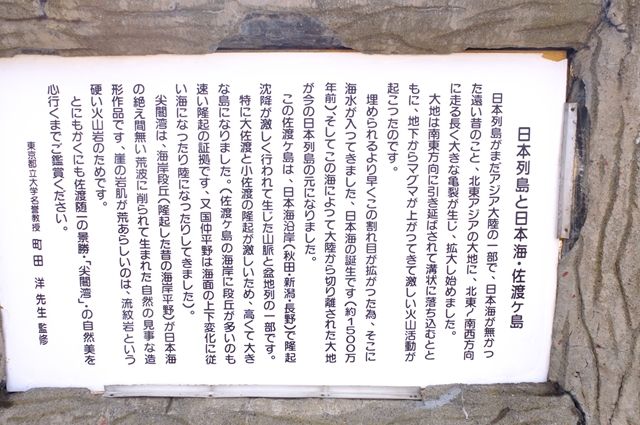 日本列島と日本海・佐渡ケ島
日本列島がまだアジア大陸の一部で、日本海が無かっ
た遠い昔のこと、北東アジアの大地に、北東〜南西方向
に走る長く大きな亀裂が生じ、拡大し始めました。
大地は南東方向に引き延ばされて溝状に落ち込むとと
もに、地下からマグマが上がってきて激しい火山活動が
起こったのです。
埋められるより早くこの割れ目が拡がった為、そこに
海水が入ってきました、日本海の誕生です(約1500万
年前)そしてこの海によって大陸から切り離された大地
が今の日本列島の元になりました。
この佐渡ケ島は、日本海沿岸(秋田・新潟・長野)で隆起
沈降が激しく行われて生じた山脈と盆地列の一部です。
特に大佐渡と小佐渡の隆起が激しいため、高くて大き
な島になりました。(佐渡ケ島の海岸に段丘が多いのも
速い隆起の証拠です、又国仲平野は海面の上下変化に従
い海になったり陸になったりしてきました。)
尖閣湾は、海岸段丘(隆起した昔の海岸平野)が日本海
の絶え間無い荒波に削られて生まれた自然の見事な造
形作品です、崖の岩肌が荒あらしいのは、流紋岩という
硬い火山岩のためです。
とにもかくにも佐渡随一の景勝・「尖閣湾」・の自然美を
心行くまでご鑑賞ください。
東京都立大学名誉教授 町田 洋 先生 監修